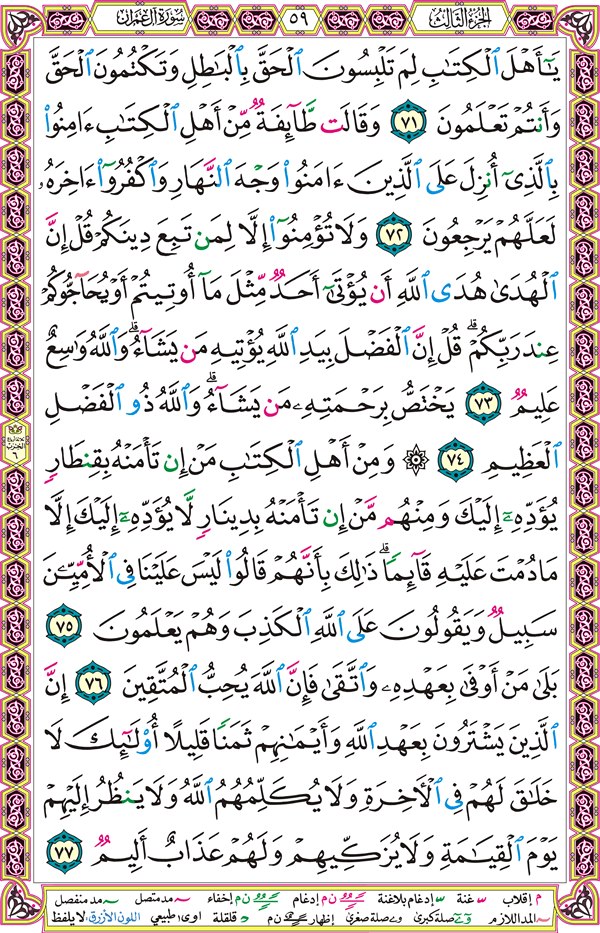 الجزء الثالث ٥٩ سورة آل عمران
يَـٰٓأَهۡلَ ٱلۡكِتَـٰبِ لِمَ تَلۡبِسُونَ ٱلۡحَقَّ بِٱلۡبَـٰطِلِ وَتَكۡتُمُونَ ٱلۡحَقَّ
وَأَنتُمۡ تَعۡلَمُونَ ٧١ وَقَالَت طَّآئِفَةٌ مِّنۡ أَهۡلِ ٱلۡكِتَـٰبِ ءَامِنُواْ
بِٱلَّذِيٓ أُنزِلَ عَلَى ٱلَّذِينَ ءَامَنُواْ وَجۡهَ ٱلنَّهَارِ وَٱكۡفُرُوٓاْ ءَاخِرَهُۥ
لَعَلَّهُمۡ يَرۡجِعُونَ ٧٢ وَلَا تُؤۡمِنُوٓاْ إِلَّا لِمَن تَبِعَ دِينَكُمۡ قُلۡ إِنَّ
ٱلۡهُدَىٰ هُدَى ٱللَّهِ أَن يُؤۡتَىٰٓ أَحَدٌ مِّثۡلَ مَآ أُوتِيتُمۡ أَوۡ يُحَآجُّوكُمۡ
عِندَ رَبِّكُمۡۗ قُلۡ إِنَّ ٱلۡفَضۡلَ بِيَدِ ٱللَّهِ يُؤۡتِيهِ مَن يَشَآءُۗ وَٱللَّهُ وَٰسِعٌ
عَلِيمٌ ٧٣ يَخۡتَصُّ بِرَحۡمَتِهِۦ مَن يَشَآءُۗ وَٱللَّهُ ذُو ٱلۡفَضۡلِ
ٱلۡعَظِيمِ ٧٤ ۞ وَمِنۡ أَهۡلِ ٱلۡكِتَـٰبِ مَنۡ إِن تَأۡمَنۡهُ بِقِنطَارٍ
يُؤَدِّهِۦٓ إِلَيۡكَ وَمِنۡهُم مَّنۡ إِن تَأۡمَنۡهُ بِدِينَارٍ لَّا يُؤَدِّهِۦٓ إِلَيۡكَ إِلَّا
مَا دُمۡتَ عَلَيۡهِ قَآئِمًاۗ ذَٰلِكَ بِأَنَّهُمۡ قَالُواْ لَيۡسَ عَلَيۡنَا فِي ٱلۡأُمِّيِّـۧنَ
سَبِيلٌ وَيَقُولُونَ عَلَى ٱللَّهِ ٱلۡكَذِبَ وَهُمۡ يَعۡلَمُونَ ٧٥
بَلَىٰ مَنۡ أَوۡفَىٰ بِعَهۡدِهِۦ وَٱتَّقَىٰ فَإِنَّ ٱللَّهَ يُحِبُّ ٱلۡمُتَّقِينَ ٧٦ إِنَّ
ٱلَّذِينَ يَشۡتَرُونَ بِعَهۡدِ ٱللَّهِ وَأَيۡمَـٰنِهِمۡ ثَمَنًا قَلِيلًا أُوْلَـٰٓئِكَ لَا
خَلَـٰقَ لَهُمۡ فِي ٱلۡأٓخِرَةِ وَلَا يُكَلِّمُهُمُ ٱللَّهُ وَلَا يَنظُرُ إِلَيۡهِمۡ
يَوۡمَ ٱلۡقِيَـٰمَةِ وَلَا يُزَكِّيهِمۡ وَلَهُمۡ عَذَابٌ أَلِيمٌ ٧٧
م إقلاب غنة إدغام بلاغنة ن م إدغام ن م إخفاء مد متصل مد منفصل
المد اللازم صلة كبرى صلة صغرى إظهار ن م قلقلة اوى طبيعي اللون الأزرق لا يلفظ